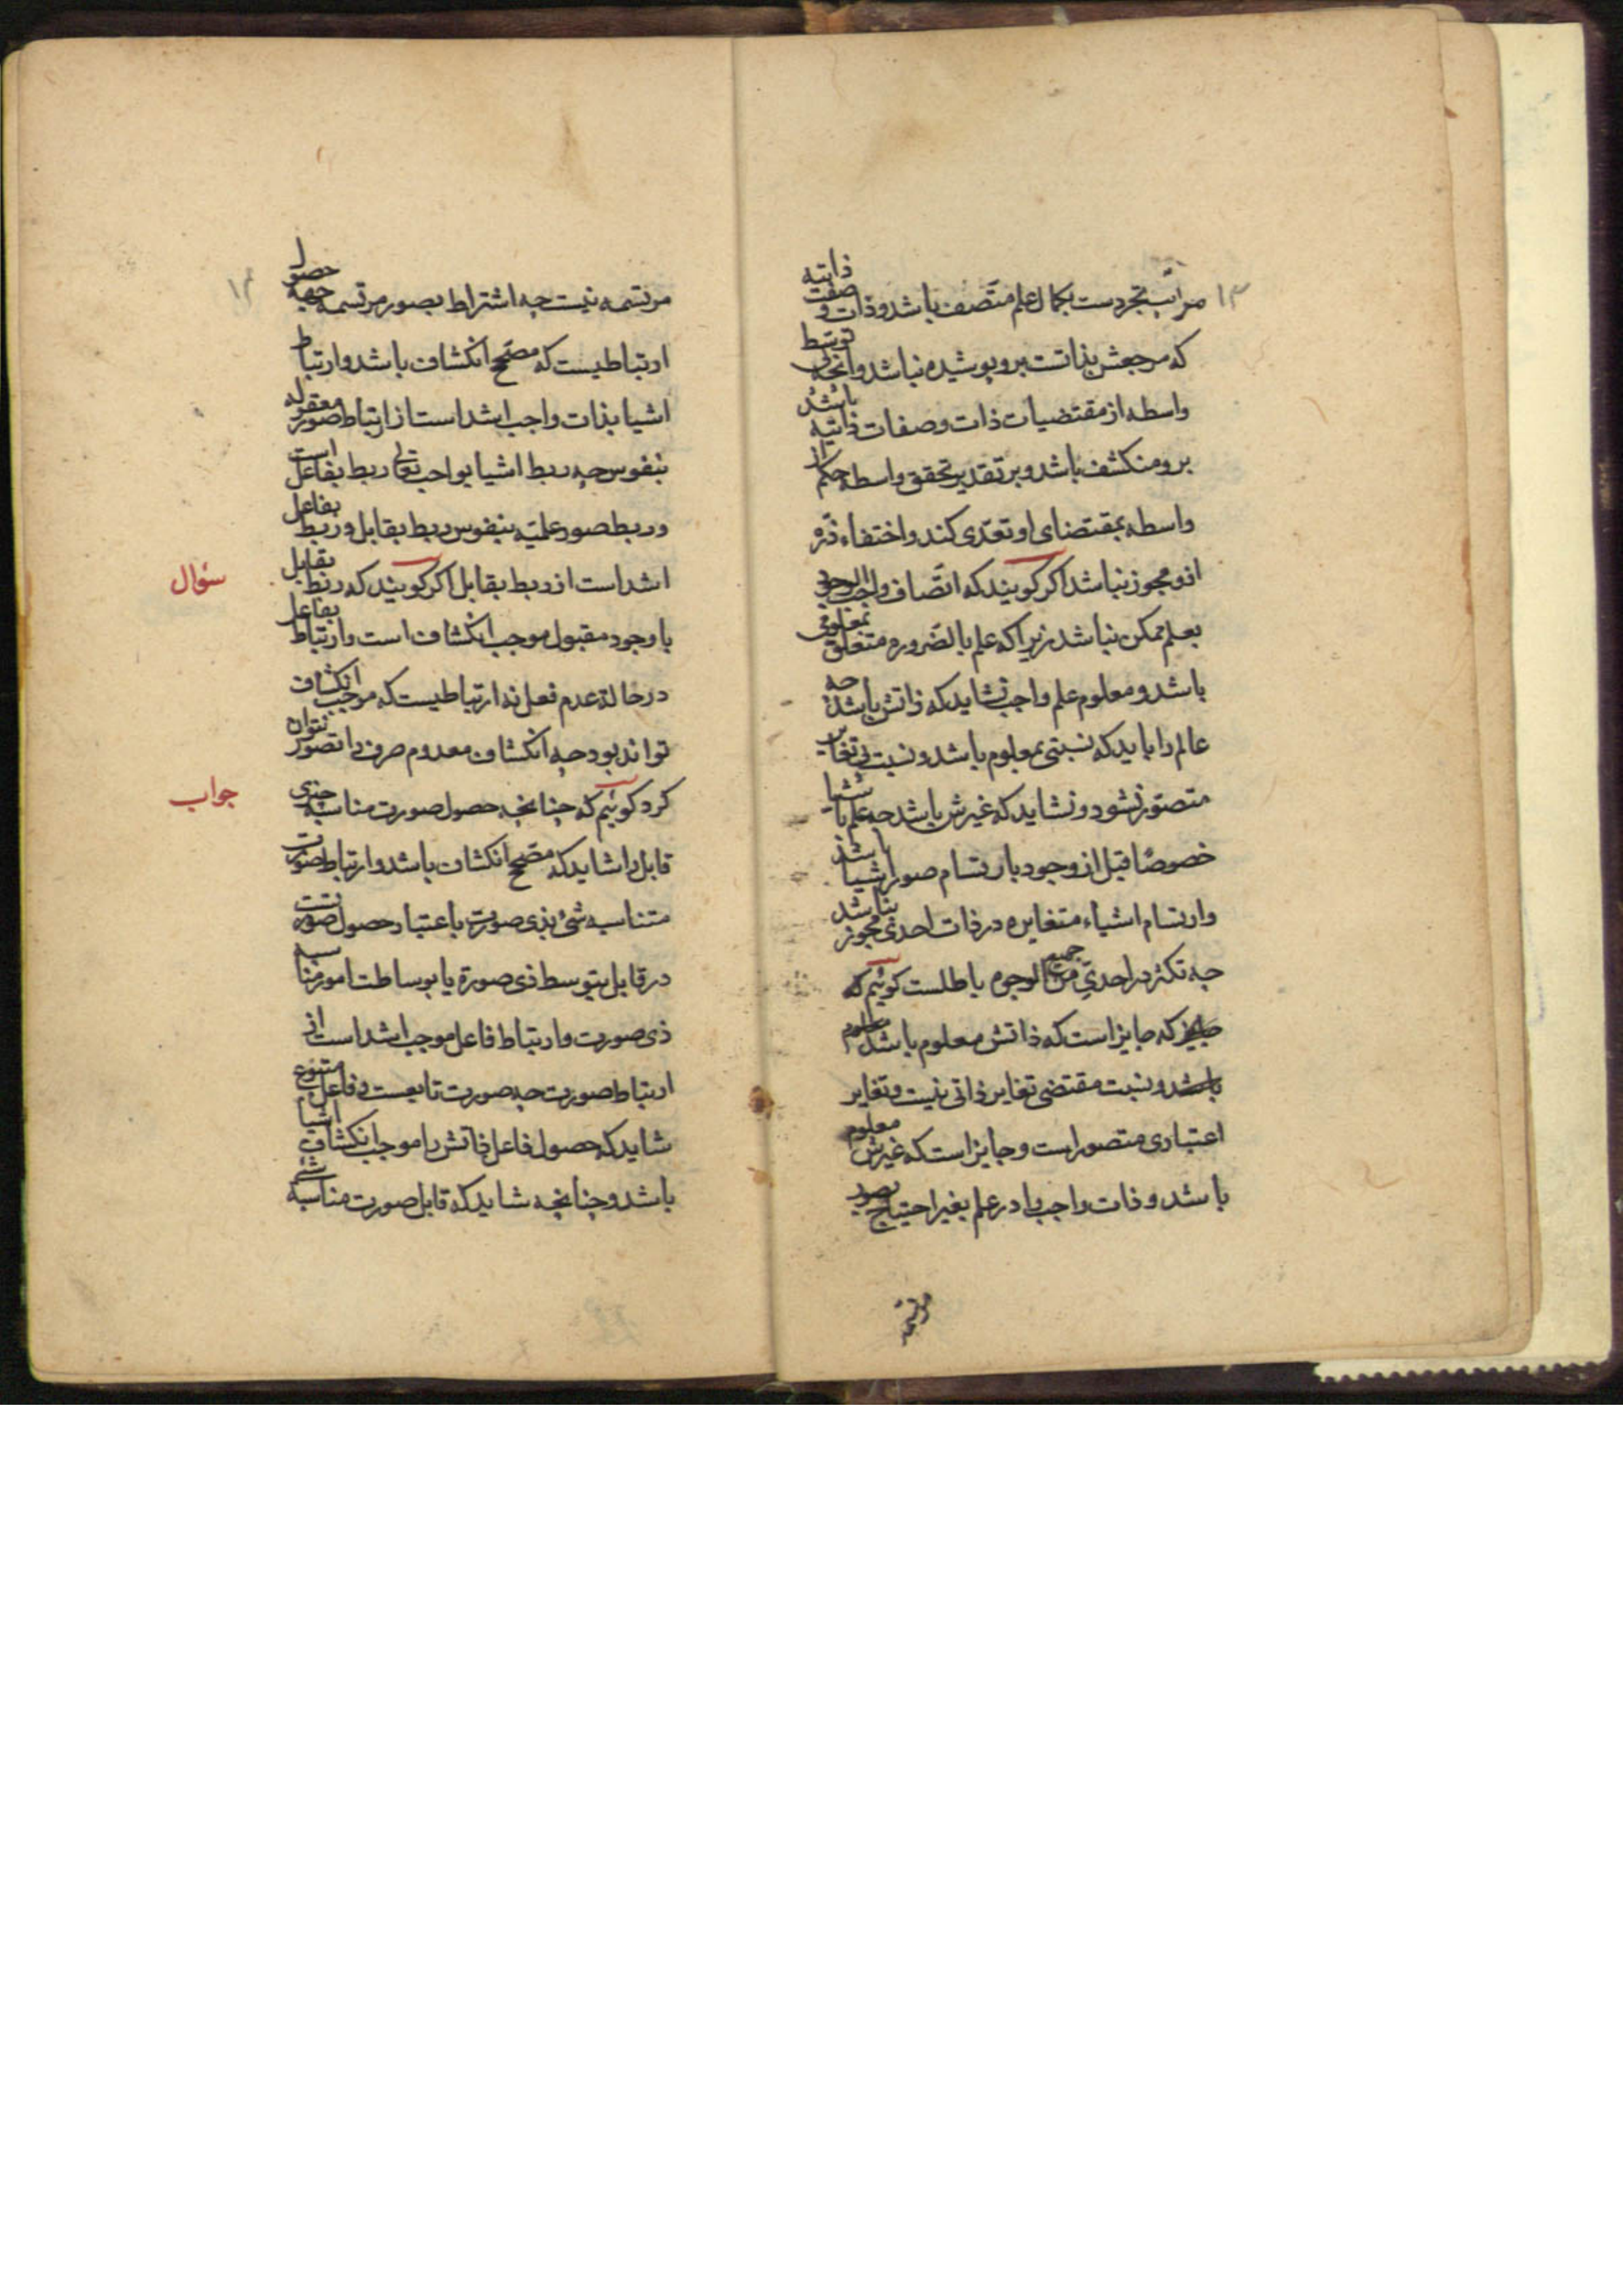 ۱۳ مراتب تجردست بکمال علم متصف باشد و ذات و صفت ذاتیه
که مرجعش بذاتست برو پوشیده نباشد و انچه بی توسط
واسطه از مقتضیات ذات و صفات ذاتیه باشد
برو منکشف باشد و بر تقدیر تحقق واسطه حکم از
واسطه بمقتضای او تعدّی کند و اختفاء ذرّه
ازو مجوز نباشد اکر کویند که اتّصاف واجب الوجود
بعلم ممکن نباشد زیرا که علم بالضّروره متعلق بمعلومی
باشد و معلوم علم واجب نشاید که ذاتش باشد چه
عالم را باید که نسبتی بمعلوم باشد و نسبت بی تغایر
متصوّر نشود و نشاید که غیرش باشد چه علم باشیا
خصوصًا قبل از وجود بارتسام صور اشیا باشد
وارتسام اشیاء متغایره در ذات احدی مجوز نباشد
چه تکثر در احدیّ من جمیع الوجوه باطلست کوئیم که
که جایز است که ذاتش معلوم باشد
و نسبت مقتضی تغایر ذاتی نیست و تغایر
اعتباری متصور است و جایز است که غیرش معلوم
باشد و ذات واجب را در علم بغیر احتیاج بصور
مرتسمه
مرتسمه نیست چه اشتراط بصور مرتسمه جهة حصول
ارتباطیست که مصحّح انکشاف باشد و ارتباط
اشیا بذات واجب اشد است از ارتباط صور معقوله
بنفوس چه ربط اشیا بواجب تعالی ربط بفاعل است
و ربط صور علمیّه بنفوس ربط بقابل و ربط بفاعل
اشد است از ربط بقابل اکر کویند که ربط بقابل
سؤال
با وجود مقبول موجب انکشاف است و ارتباط بفاعل
در حالة عدم فعل نه ارتباطیست که موجب انکشاف
تواند بود چه انکشاف معدوم صرف را تصور نتوان
کرد کوئیم که چنانچه حصول صورت مناسبه چیزی
جواب
قابل را شاید که مصحّح انکشاف باشد و ارتباط صورت
متناسبه شئ بذی صورت باعتبار حصول صورتست
در قابل بتوسط ذی صورة یا بوساطت امور مناسبه
ذی صورت و ارتباط فاعل موجب اشد است از
ارتباط صورت چه صورت تابعست و فاعل متبوع
شاید که حصول فاعل ذاتش را موجب انکشاف اشیا
باشد و چنانچه شاید که قابل صورت مناسبه شئ